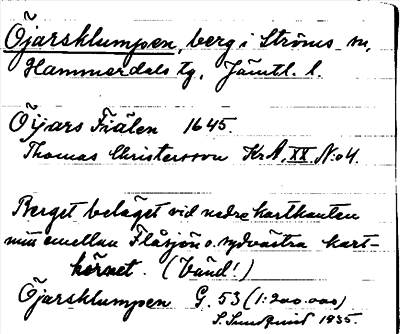 Öjarsklumpen, berg i Ströms sn,
Hammerdals tg, Jämtl. l.
Öijars Fiälen 1645.
Thomas Christersson KrA, XX. N:o 4.
Berget beläget vid nedre kartkanten
mitt emellan Flåsjön o. sydvästra kart-
hörnet. (Vänd!)
Öjarsklumpen G. 53 (1:200.000)
S. Sundqvist 1935.